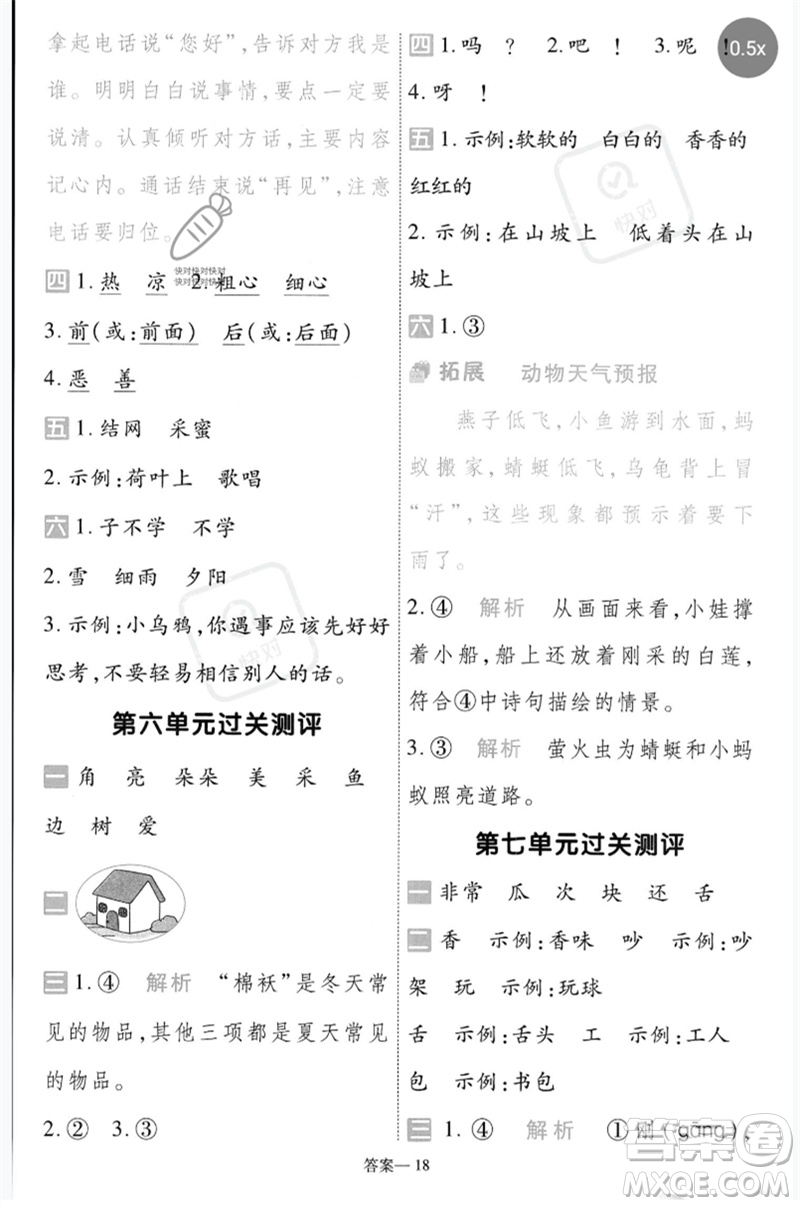 拿起电话说“您好”,告诉对方我是
谁。明明白白说事情,要点一定要
说清。认真倾听对方话,主要内容
记心内。通话结束说“再见”,注意
电话要归位。
快对快对快对
快对快对快对
四 1.热 凉 2.粗心 细心
3.前(或:前面) 后(或:后面)
4.恶 善
五 1.结网 采蜜
2.示例:荷叶上 歌唱
六 1.子不学 不学
2.雪 细雨 夕阳
3.示例:小乌鸦,你遇事应该先好好
思考,不要轻易相信别人的话。
快对
第六单元过关测评
一 角 亮 朵朵 美 采 鱼
边 树 爱
二
三 1.④ 解析 “棉袄”是冬天常
见的物品,其他三项都是夏天常见
的物品。
2.② 3.③
四 1.吗 ? 2.吧 ! 3.呢 !
0.5x
4.呀 !
五 1.示例:软软的 白白的 香香的
红红的
快对
2.示例:在山坡上 低着头在山
坡上
六 1.③
拓展 动物天气预报
燕子低飞,小鱼游到水面,蚂
蚁搬家,蜻蜓低飞,乌龟背上冒
“汗”,这些现象都预示着要下
雨了。
2.④ 解析 从画面来看,小娃撑
着小船,船上还放着刚采的白莲,
符合④中诗句描绘的情景。
3.③ 解析 萤火虫为蜻蜓和小蚂
蚁照亮道路。
第七单元过关测评
一 非常 瓜 次 块 还 舌
二 香 示例:香味 吵 示例:吵
架 玩 示例:玩球
舌 示例:舌头 工 示例:工人
包 示例:书包
三 1.④ 解析 ①刚(gāng),
答案—18
答案圈
MXQE.COM